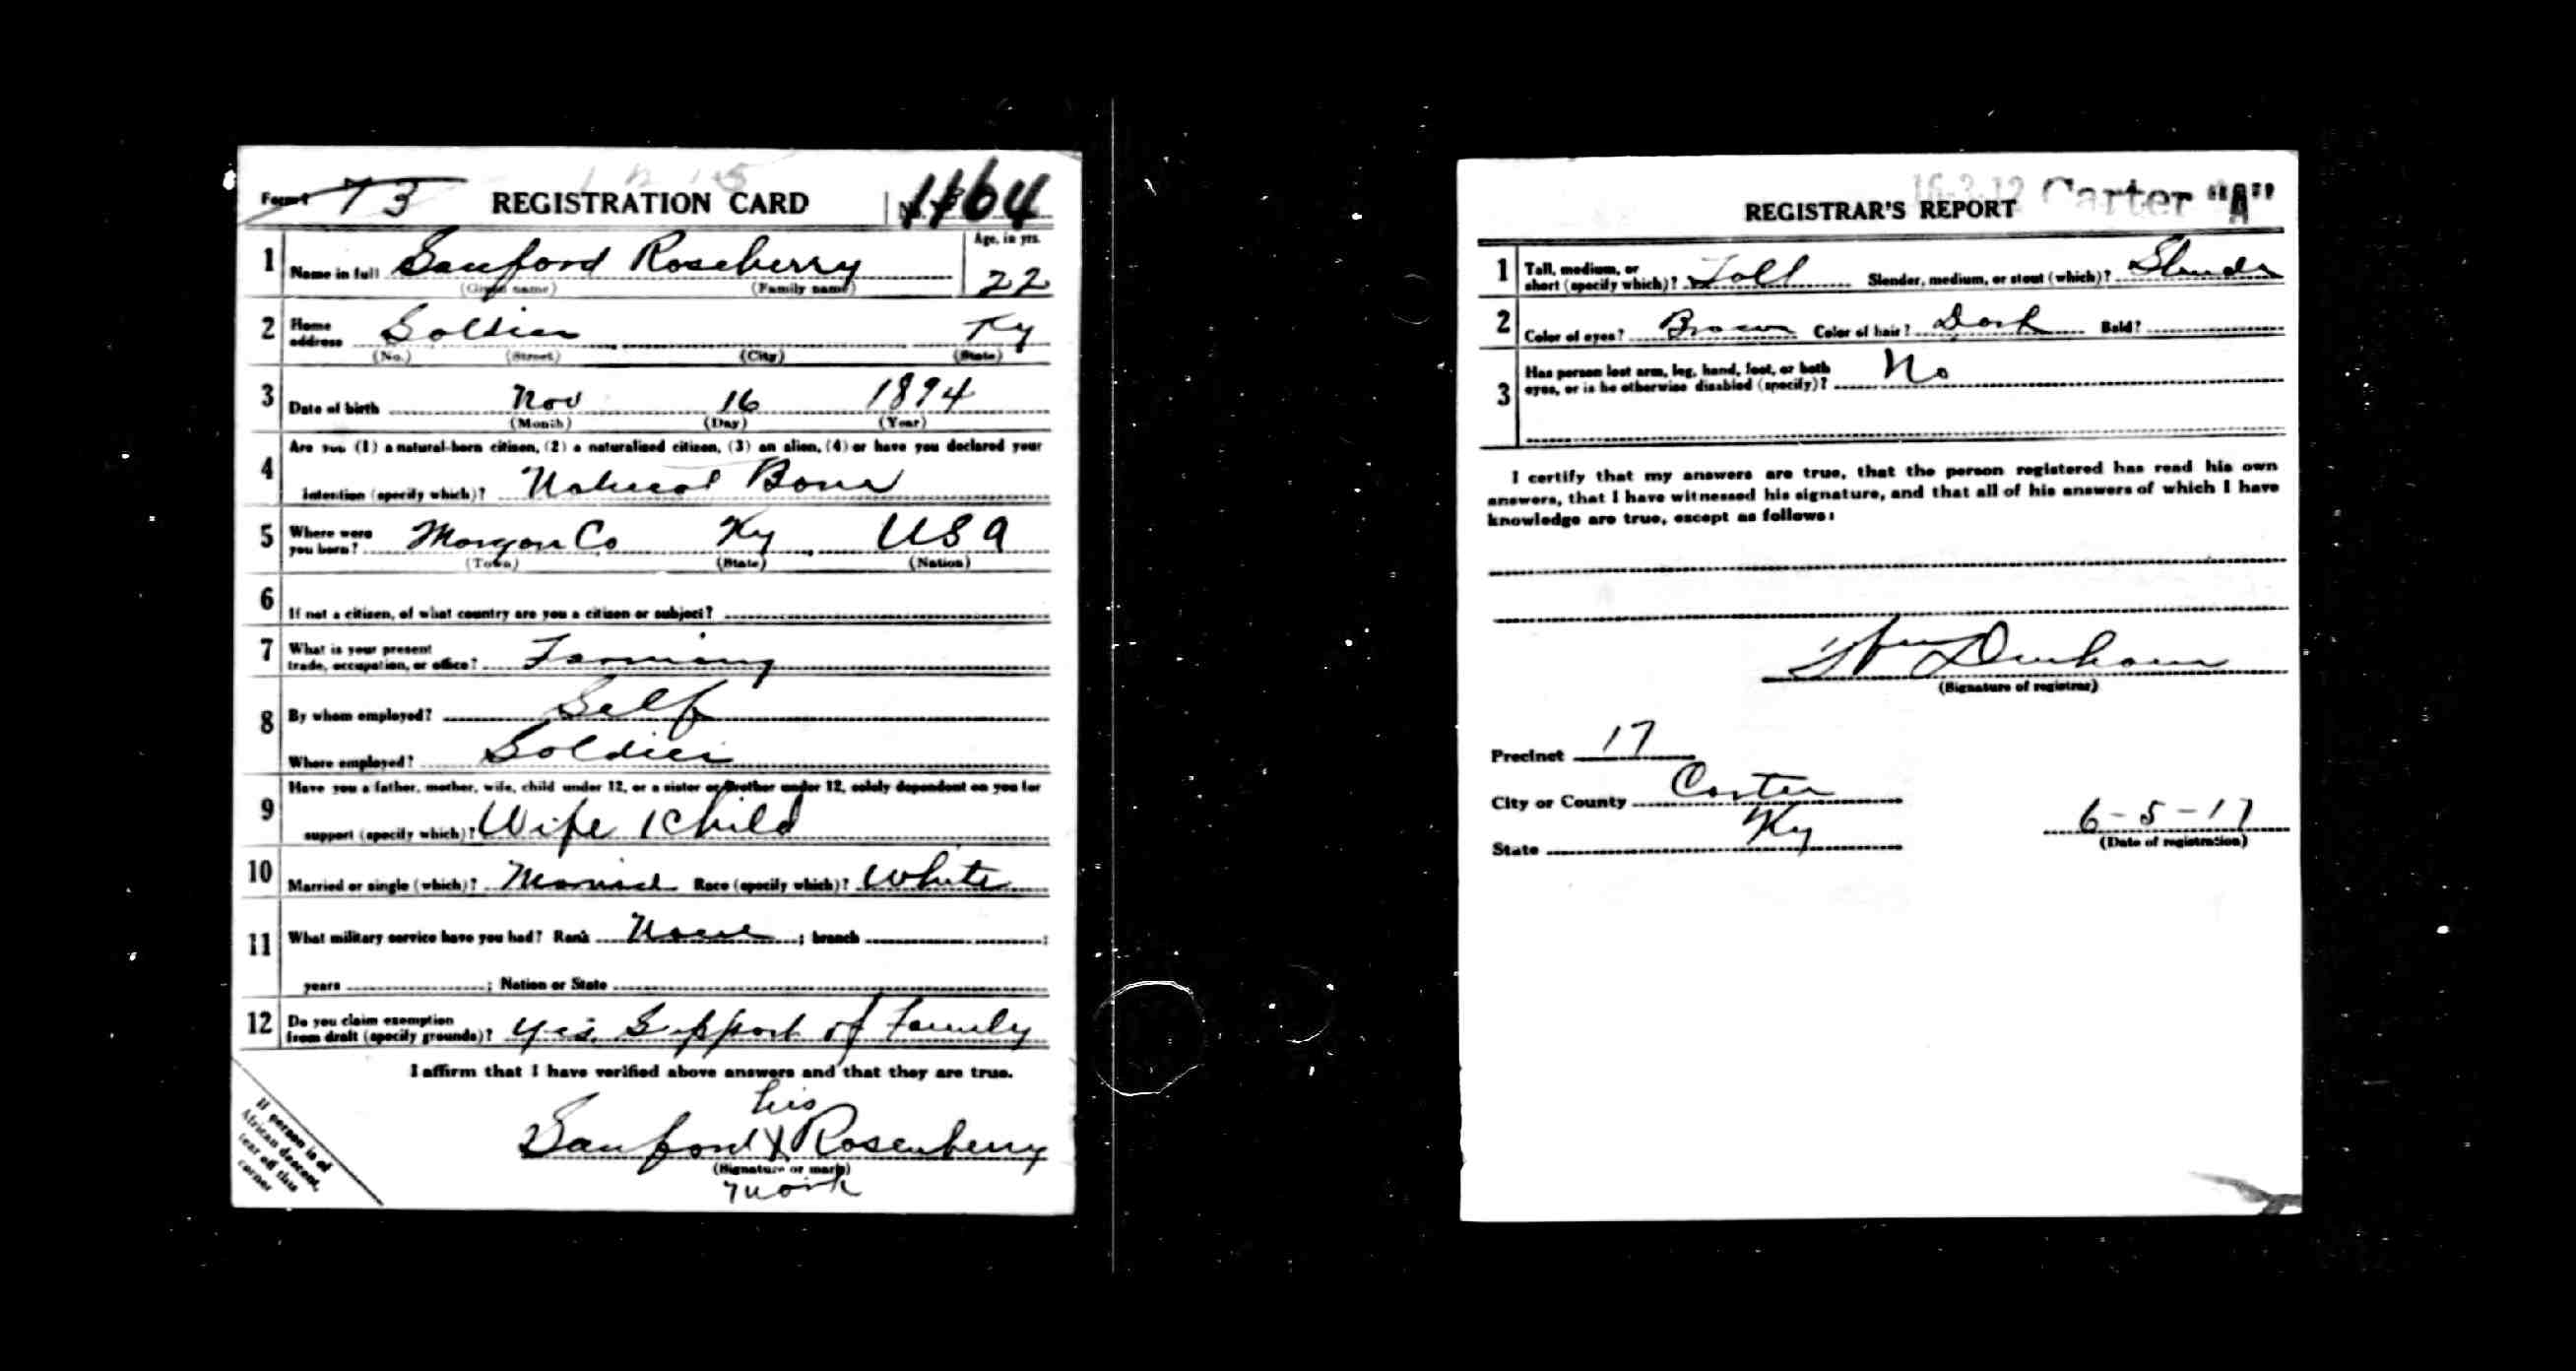 Form 1 73 REGISTRATION CARD No. 1164
1 Name in full Sanford Roseberry Age, in yrs. 22
(Given name) (Family name)
2 Home address Soldier Ky
(No.) (Street) (City) (State)
3 Date of birth Nov 16 1894
(Month) (Day) (Year)
4 Are you (1) a natural-born citizen, (2) a naturalized citizen, (3) an alien, (4) or have you declared your
intention (specify which)? Natural Born
5 Where were you born? Morgan Co Ky, USA
(Town) (State) (Nation)
6 If not a citizen, of what country are you a citizen or subject?
7 What is your present trade, occupation, or office? Farming
8 By whom employed? Self
Where employed? Soldier
9 Have you a father, mother, wife, child under 12, or a sister or brother under 12, solely dependent on you for
support (specify which)? Wife 1 Child
10 Married or single (which)? Married Race (specify which)? White
11 What military service have you had? Rank None ; branch ;
years ; Nation or State
12 Do you claim exemption from draft (specify grounds)? Yes. Support of Family
I affirm that I have verified above answers and that they are true.
his
Sanford X Rosenberry
(Signature or mark)
mark
If person is of
African descent,
tear off this
corner
16-3-12 Carter "A"
REGISTRAR'S REPORT
1 Tall, medium, or short (specify which)? Tall Slender, medium, or stout (which)? Slender
2 Color of eyes? Brown Color of hair? Dark Bald?
3 Has person lost arm, leg, hand, foot, or both eyes, or is he otherwise disabled (specify)? No
I certify that my answers are true, that the person registered has read his own
answers, that I have witnessed his signature, and that all of his answers of which I have
knowledge are true, except as follows:
Wm Durham
(Signature of registrar)
Precinct 17
City or County Carter
State Ky 6-5-17
(Date of registration)